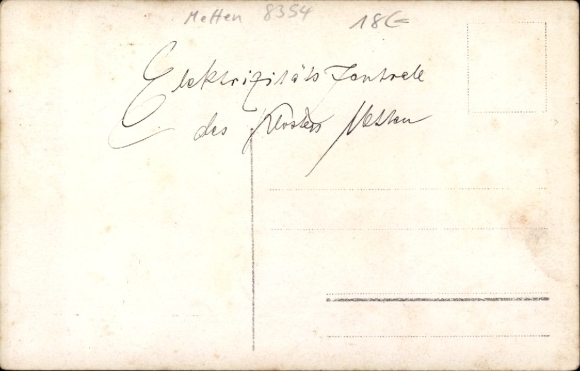 Metten 8354 18€
Elektrizitäts Zentrale
des Klosters Metten